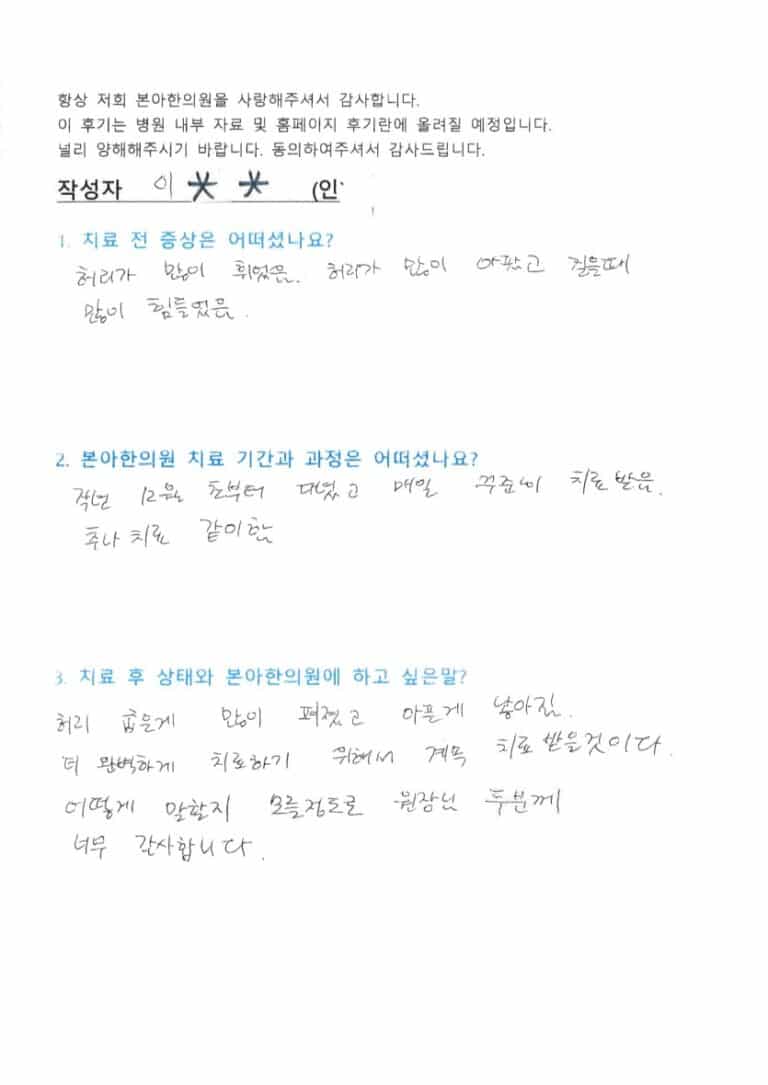 항상 저희 본아한의원을 사랑해주셔서 감사합니다.
이 후기는 병원 내부 자료 및 홈페이지 후기란에 올려질 예정입니다.
널리 양해해주시기 바랍니다. 동의하여주셔서 감사드립니다.
작성자 이 * * (인
1. 치료 전 증상은 어떠셨나요?
허리가 많이 휘었음. 허리가 많이 아팠고 걸을때
많이 힘들었음.
2. 본아한의원 치료 기간과 과정은 어떠셨나요?
작년 12월 초부터 다녔고 매일 꾸준이 치료 받음.
추나 치료 같이함
3. 치료 후 상태와 본아한의원에 하고 싶은말?
허리 굽은게 많이 펴졌고 아픈게 낳아짐.
더 완벽하게 치료하기 위해서 계속 치료 받을것이다.
어떻게 말할지 모를정도로 원장님 두분께
너무 감사합니다.